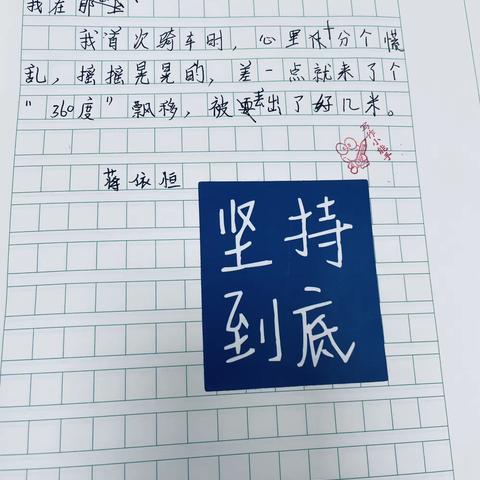 我在那
我首次骑车时,心里十分个慌
乱,摇摇晃晃的,差一点就来了个
"360度"飘移,被出了好几米。
写作小能手
蒋依恒
坚持
到底